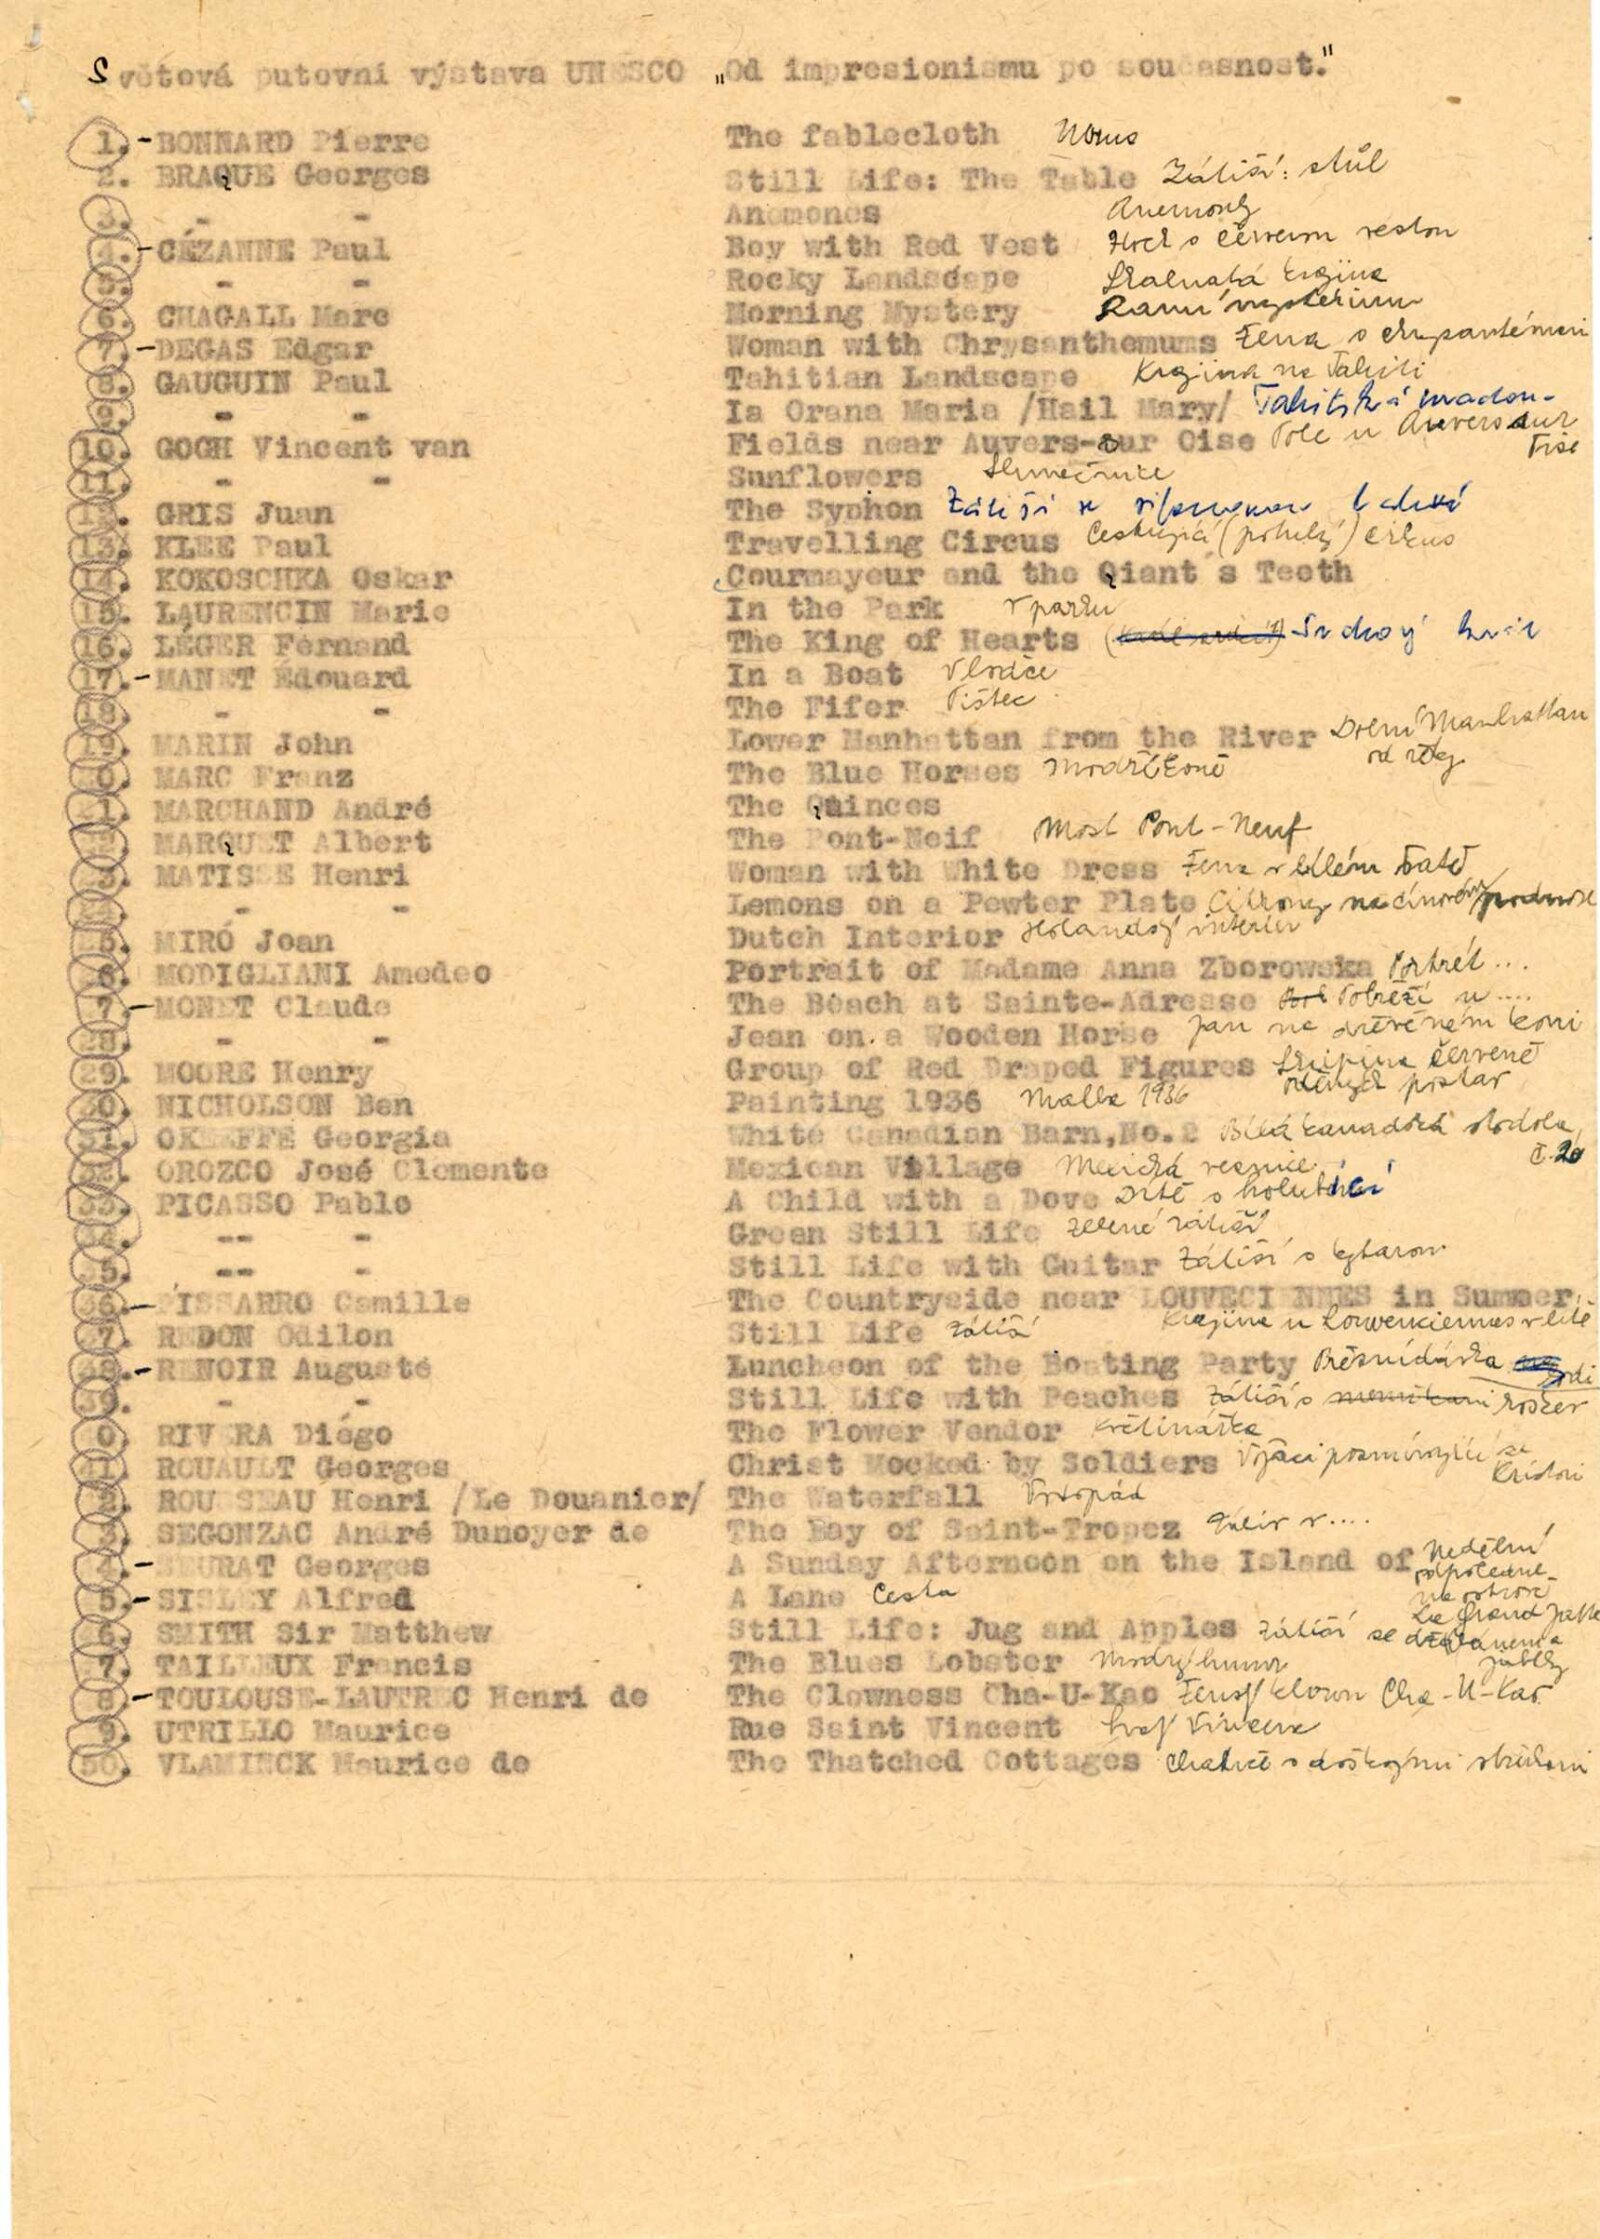 Světová putovní výstava UNESCO „Od impresionismu po současnost."
1. - BONNARD Pierre The fablecloth Ubrus
2. BRAQUE Georges Still Life: The Table Zátiší: stůl
3. - - Anemones Anemonky
4. - CÉZANNE Paul Boy with Red Vest Hoch s červenou vestou
5. - - Rocky Landscape Skalnatá krajina
6. CHAGALL Marc Morning Mystery Ranní mysterium
7. - DEGAS Edgar Woman with Chrysanthemums Žena s chrysantémami
8. GAUGUIN Paul Tahitian Landscape Krajina na Tahiti
9. - - Ia Orana Maria /Hail Mary/ Tahitská madon-
10. GOGH Vincent van Fields near Auvers-sur Oise Pole u Auvers sur
Oise
11. - - Sunflowers Slunečnice
12. GRIS Juan The Syphon Zátiší se
13. KLEE Paul Travelling Circus Cestující (pohyblý) cirkus
14. KOKOSCHKA Oskar Courmayeur and the Qiant s Teeth
15. LAURENCIN Marie In the Park V parku
16. LÉGER Fernand The King of Hearts Srdcový král
17. - MANET Édouard In a Boat V loďce
18. - - The Fifer Pištec
19. MARIN John Lower Manhattan from the River Dolní Manhattan
od řeky
20. MARC Franz The Blue Horses Modří koně
21. MARCHAND André The Quinces
22. MARQUET Albert The Pont-Neif Most Pont-Neuf
23. MATISSE Henri Woman with White Dress Žena v bílém šatě
24. - - Lemons on a Pewter Plate Citrony na cínovém podnose
25. MIRÓ Joan Dutch Interior Holandský interiér
26. MODIGLIANI Amedeo Portrait of Madame Anna Zborowska Portrét ...
27. - MONET Claude The Beach at Sainte-Adresse Pobřeží u ....
28. - - Jean on a Wooden Horse Jan na dřevěném koni
29. MOORE Henry Group of Red Draped Figures Skupina červeně
oděných postav
30. NICHOLSON Ben Painting 1936 Malba 1936
31. OKEEFFE Georgia White Canadian Barn,No.2 Bílá kanadská stodola,
č. 2
32. OROZCO José Clemente Mexican Village Mexická vesnice
33. PICASSO Pablo A Child with a Dove Dítě s holubicí
34. -- - Green Still Life Zelené zátiší
35. -- - Still Life with Guitar Zátiší s kytarou
36. - PISSARRO Camille The Countryside near LOUVECIENNES in Summer,
Krajina u Louvenkiennes v létě
37. REDON Odilon Still Life Zátiší
38. - RENOIR Auguste Luncheon of the Boating Party Přesnídávka
39. - - Still Life with Peaches Zátiší s
40. RIVERA Diégo The Flower Vendor Květinářka
41. ROUAULT Georges Christ Mocked by Soldiers Vojáci posmívající se
Kristovi
42. ROUSSEAU Henri /Le Douanier/ The Waterfall Vodopád
43. SEGONZAC André Dunoyer de The Bay of Saint-Tropez Záliv v ....
44. - SEURAT Georges A Sunday Afternoon on the Island of Nedělní
odpoledne
na ostrově
La Grand Jatte
45. - SISLEY Alfred A Lane Cesta
46. SMITH Sir Matthew Still Life: Jug and Apples Zátiší se džbánem a
jablky
47. TAILLEUX Francis The Blues Lobster Modrý humr
48. - TOULOUSE-LAUTREC Henri de The Clowness Cha-U-Kao Ženský klown Cha-U-Kao
49. UTRILLO Maurice Rue Saint Vincent
50. VLAMINCK Maurice de The Thatched Cottages Chalupě s doškovými střechami